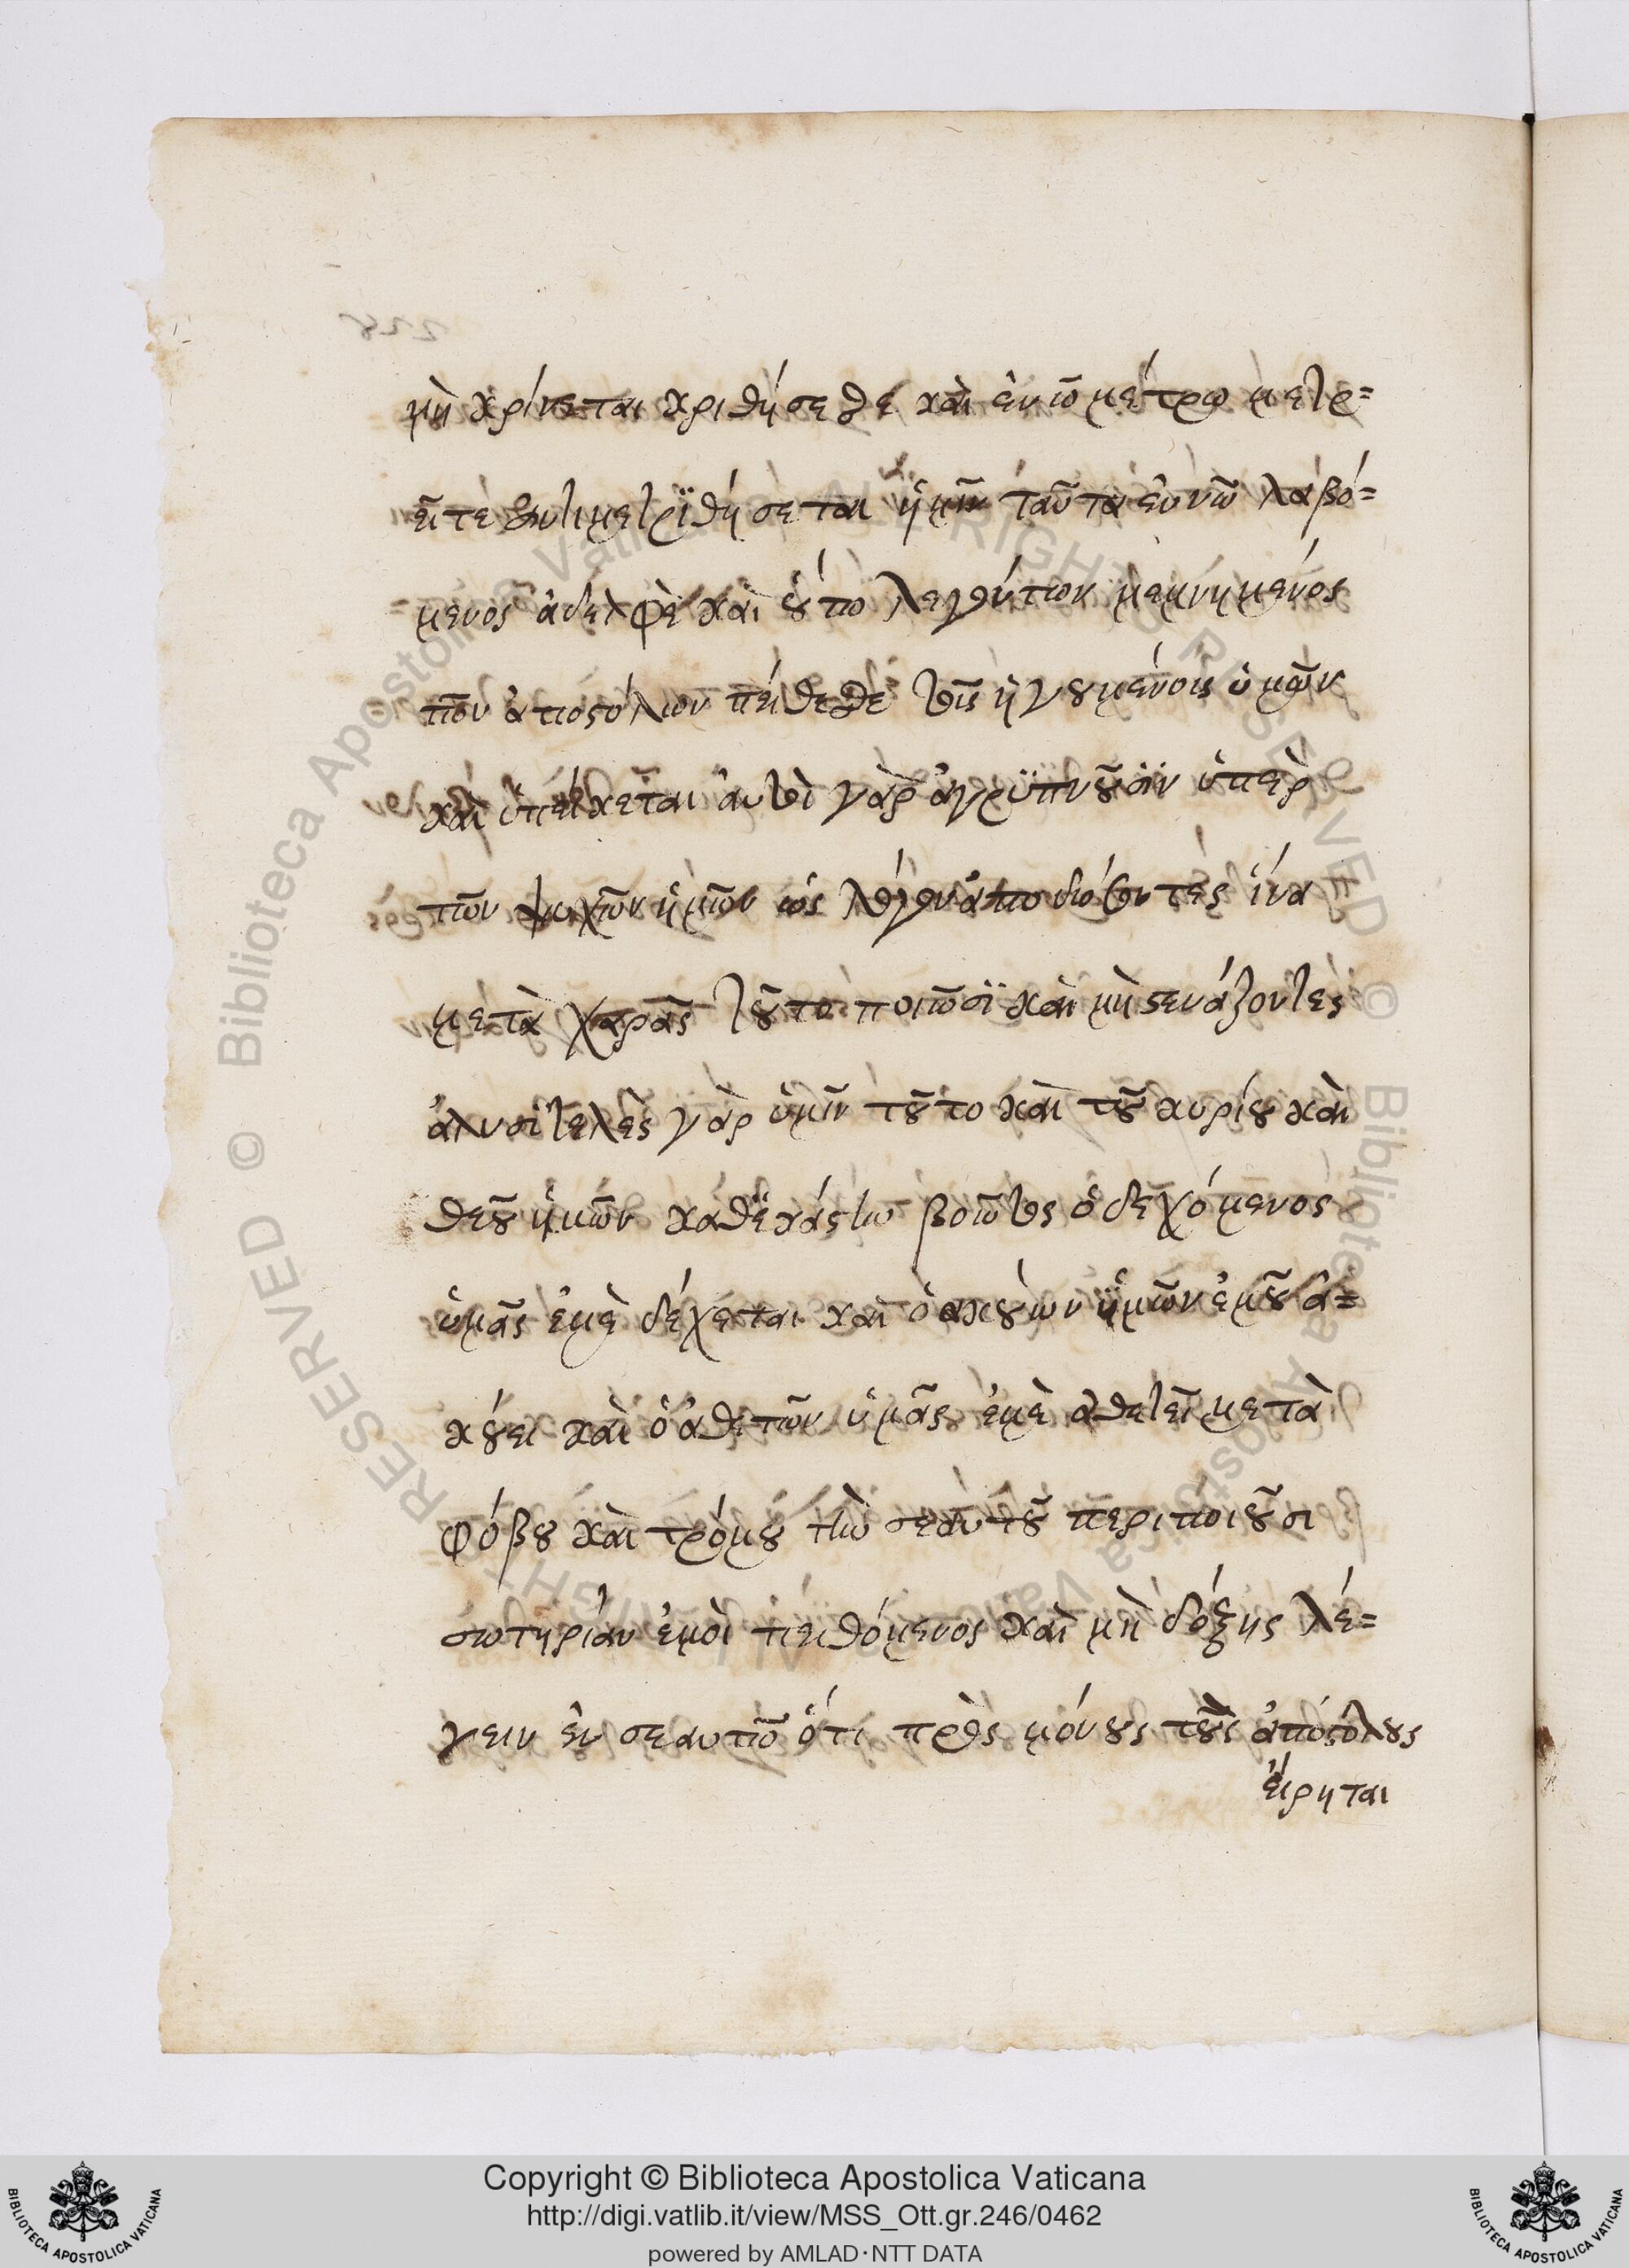 μὴ κρίνεται κριθήσεσθε καὶ ἐν ὧ μέτρω μετρ=
εῖτε ἀντιμετρϊθήσεται ἡμῖν ταῦτα ἐν νῶ λαβό=
μενος ἀδελφὲ καὶ ὑπο λεγόντων μεμνημένος
τῶν ἀποστόλων πείθεσθε τοῖς ἡγουμένοις ὑμῶν
καὶ ὑπείκεται αὐτοὶ γὰρ ἀγρϋπνοῦσϊν ὑπὲρ
τῶν ψυχῶν ἡμῶν ὡς λόγον ἀποδώσοντες ἵνα
μετὰ χαρᾶς τοῦτο ποιῶσϊ καὶ μὴ στενάζοντες
ἀλυσϊτελὲς γὰρ ὑμῖν τοῦτο καὶ τοῦ κυρίου καὶ
θεοῦ ἡμῶν καθεκάστω βοῶντος ὁ δεχόμενος
ὑμᾶς ἐμὲ δέχεται καὶ ὁ ακούων ἡμῶν ἐμοῦ ἀ=
κούει καὶ ὁ ἀθετῶν ὑμᾶς ἐμὲ αθετεῖ μετὰ
φόβου καὶ τρόμου τὴν σεαυτοῦ περιποιοῦσι
σωτηρίαν ἐμοὶ πειθόμενος καὶ μὴ δόξης λέ=
γειν ἐν σεαυτῶ ὅτι πρὸς μόνους τοὺς ἀποστόλους
εἴρηται
Copyright © Biblioteca Apostolica Vaticana
http://digi.vatlib.it/view/MSS_Ott.gr.246/0462
powered by AMLAD·NTT DATA